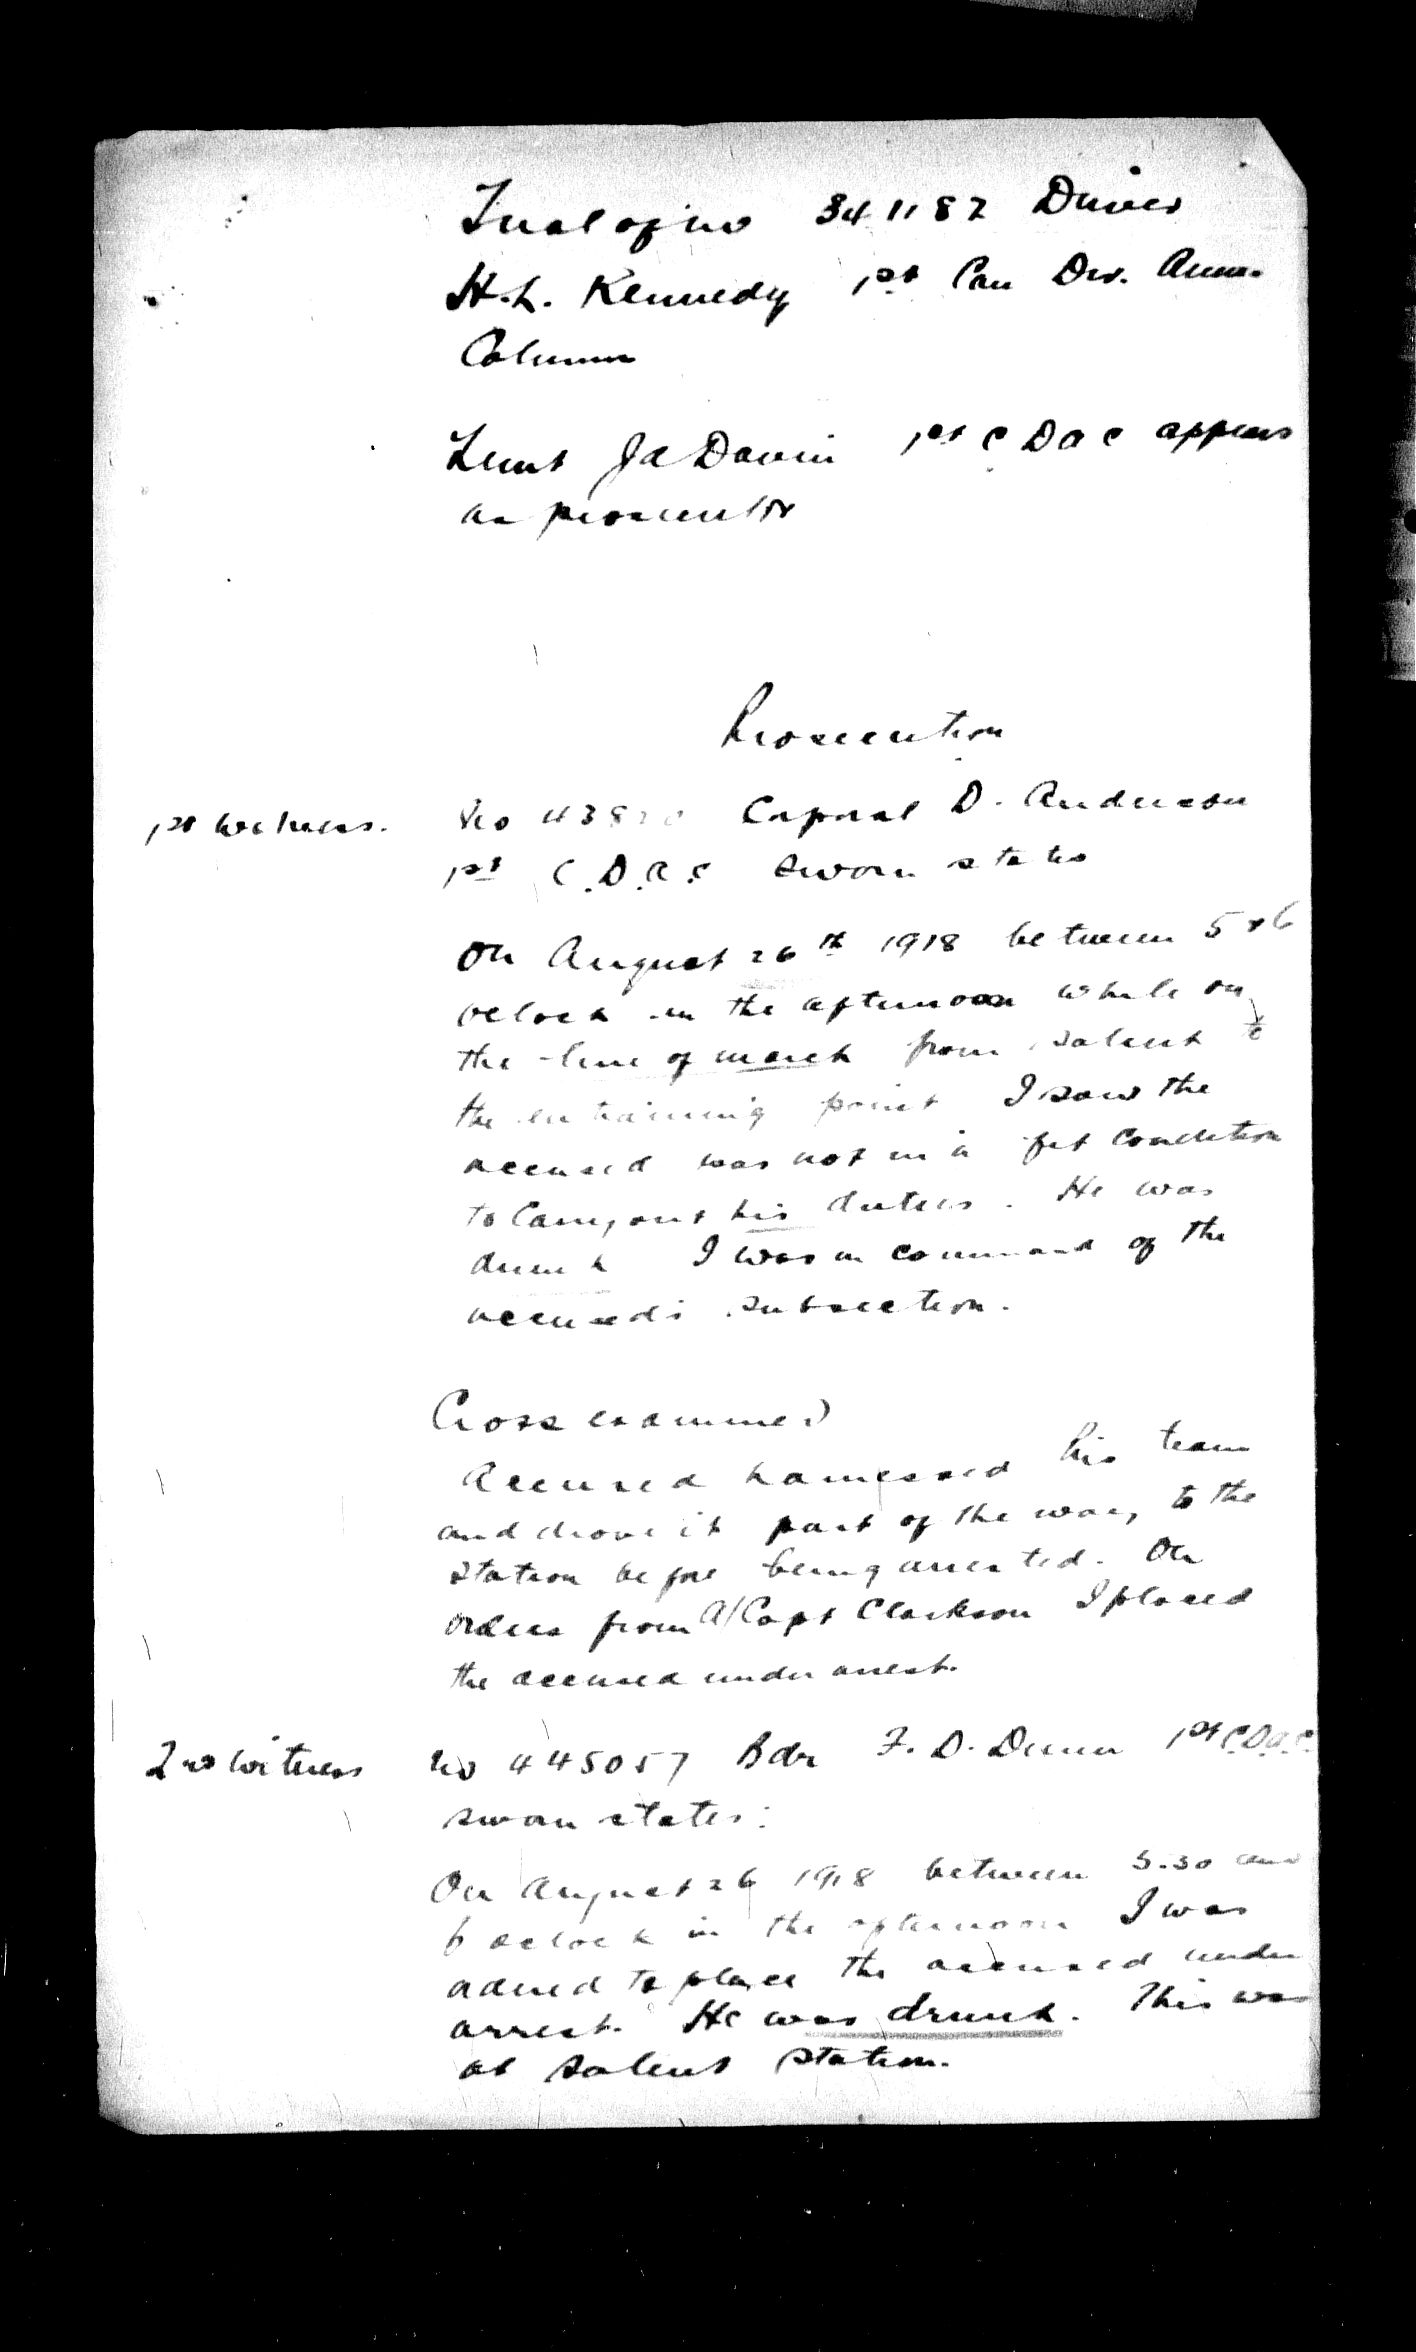 Trial of no 341182 Driver
H.L. Kennedy 1st Can Div. Amm.
Column
Lieut J A Davin 1st C D A C appears
as prosecutor
Prosecution
1st Witness. No 438 Corporal D. Anderson
1st C.D.A.C sworn states
On August 26th 1918 between 5 & 6
oclock in the afternoon while on
the line of march from Saleux to
the entraining point I saw the
accused was not in a fit condition
to carry out his duties. He was
drunk I was in command of the
accused's subsection.
Cross examined
Accused harnessed his team
and drove it part of the way to the
station before being arrested. On
orders from A/Capt Clarkson I placed
the accused under arrest.
2nd Witness No 445057 Bdr F. D. Dunn 1st C.D.A.C.
sworn states:
On August 26 1918 between 5.30 and
6 oclock in the afternoon I was
ordered to place the accused under
arrest. He was drunk. This was
at Saleux station.